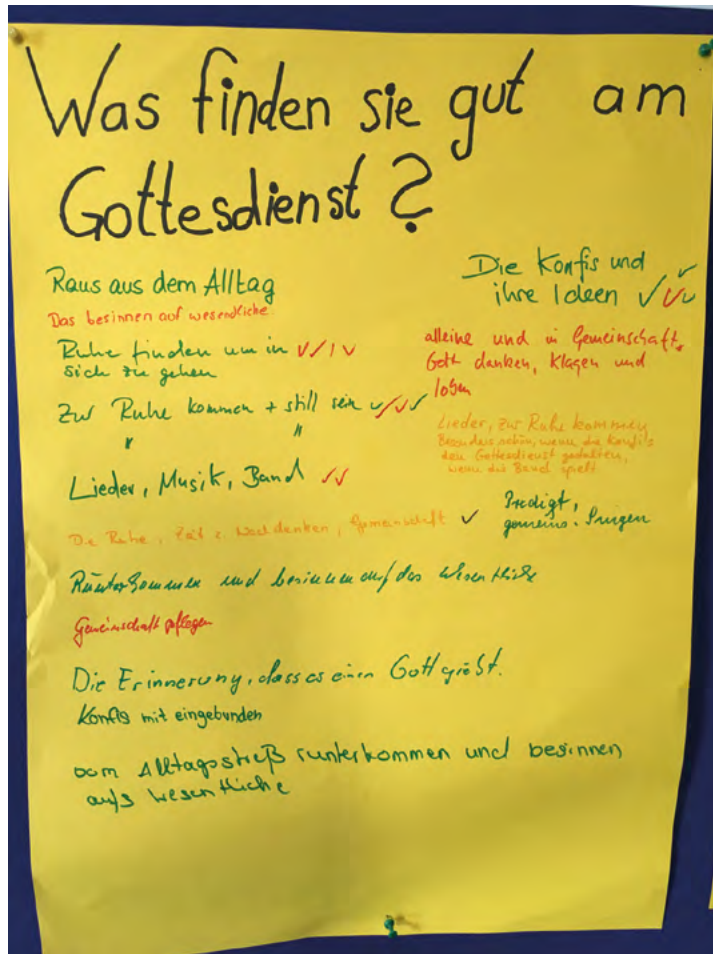 Was finden sie gut am
Gottesdienst?
Raus aus dem Alltag
Das besinnen auf wesendliche
Ruhe finden um in
sich zu gehen
Zur Ruhe kommen + still sein
" "
Lieder, Musik, Band
Die Ruhe, Zeit z. Nachdenken, Gemeinschaft
Runterkommen und besinnen auf das Wesentliche
Gemeinschaft pflegen
Die Erinnerung, dass es einen Gott giebt.
Konfis mit eingebunden
vom Alltagsstreß runterkommen und besinnen
aufs Wesentliche
Die Konfis und
ihre Ideen
alleine und in Gemeinschaft
Gott danken, klagen und
loben
Lieder, zur Ruhe kommen
Besonders schön, wenn die Konfis
den Gottesdienst gestalten,
wenn die Band spielt
Predigt,
gemeins. Singen